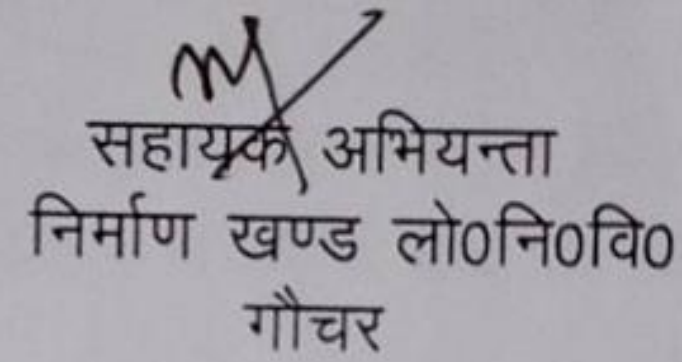 सहायक अभियन्ता
निर्माण खण्ड लो0नि0वि0
गौचर